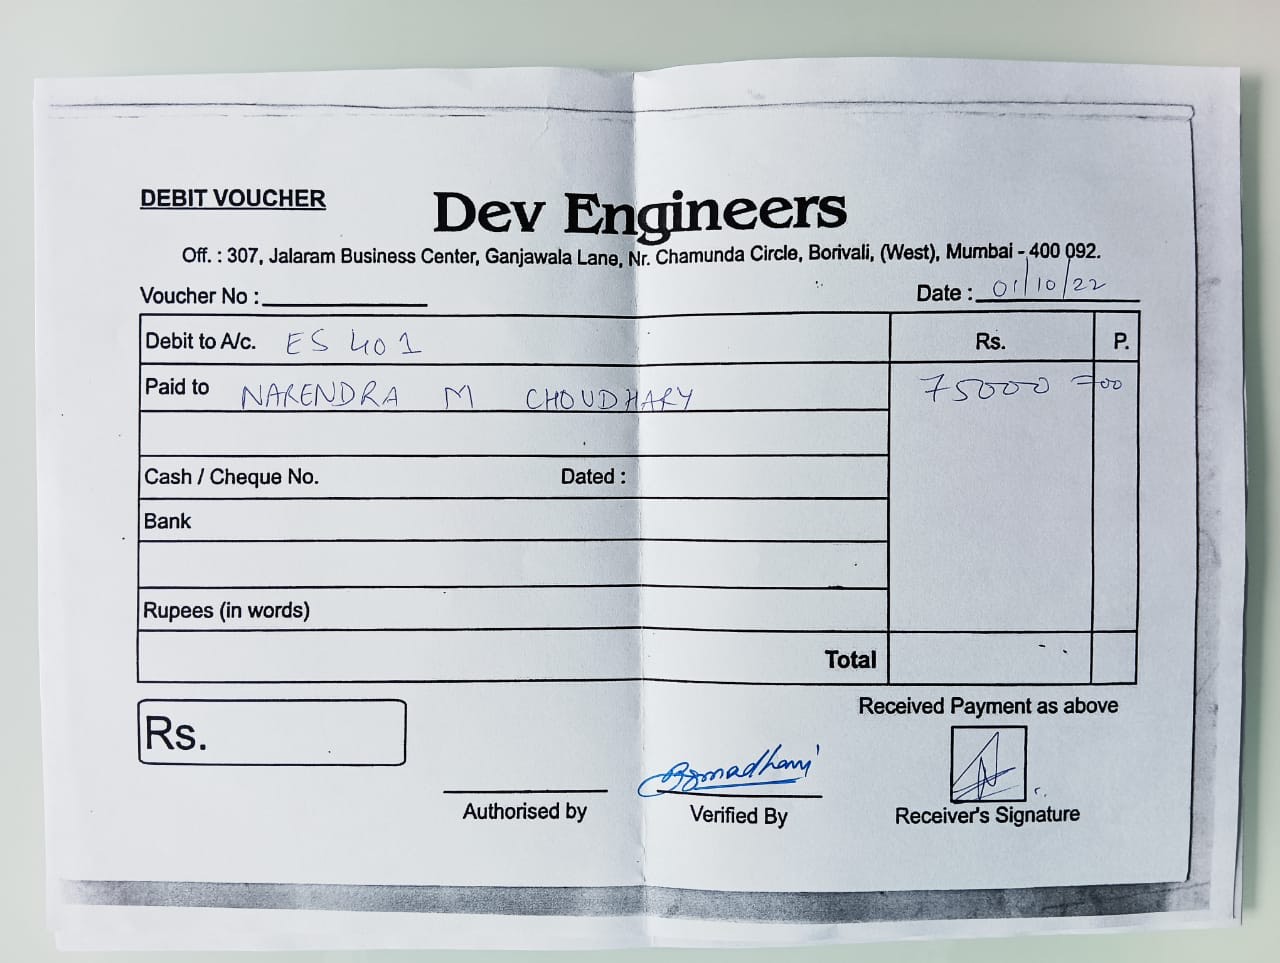 DEBIT VOUCHER
Dev Engineers
Off. : 307, Jalaram Business Center, Ganjawala Lane, Nr. Chamunda Circle, Borivali, (West), Mumbai - 400 092.
Voucher No : Date : 01/10/22
Debit to A/c. ES 401 Rs. P.
Paid to NARENDRA M CHOUDHARY 75000 =00
Cash / Cheque No. Dated :
Bank
Rupees (in words)
Total
Received Payment as above
Rs.
Authorised by Verified By Receiver's Signature